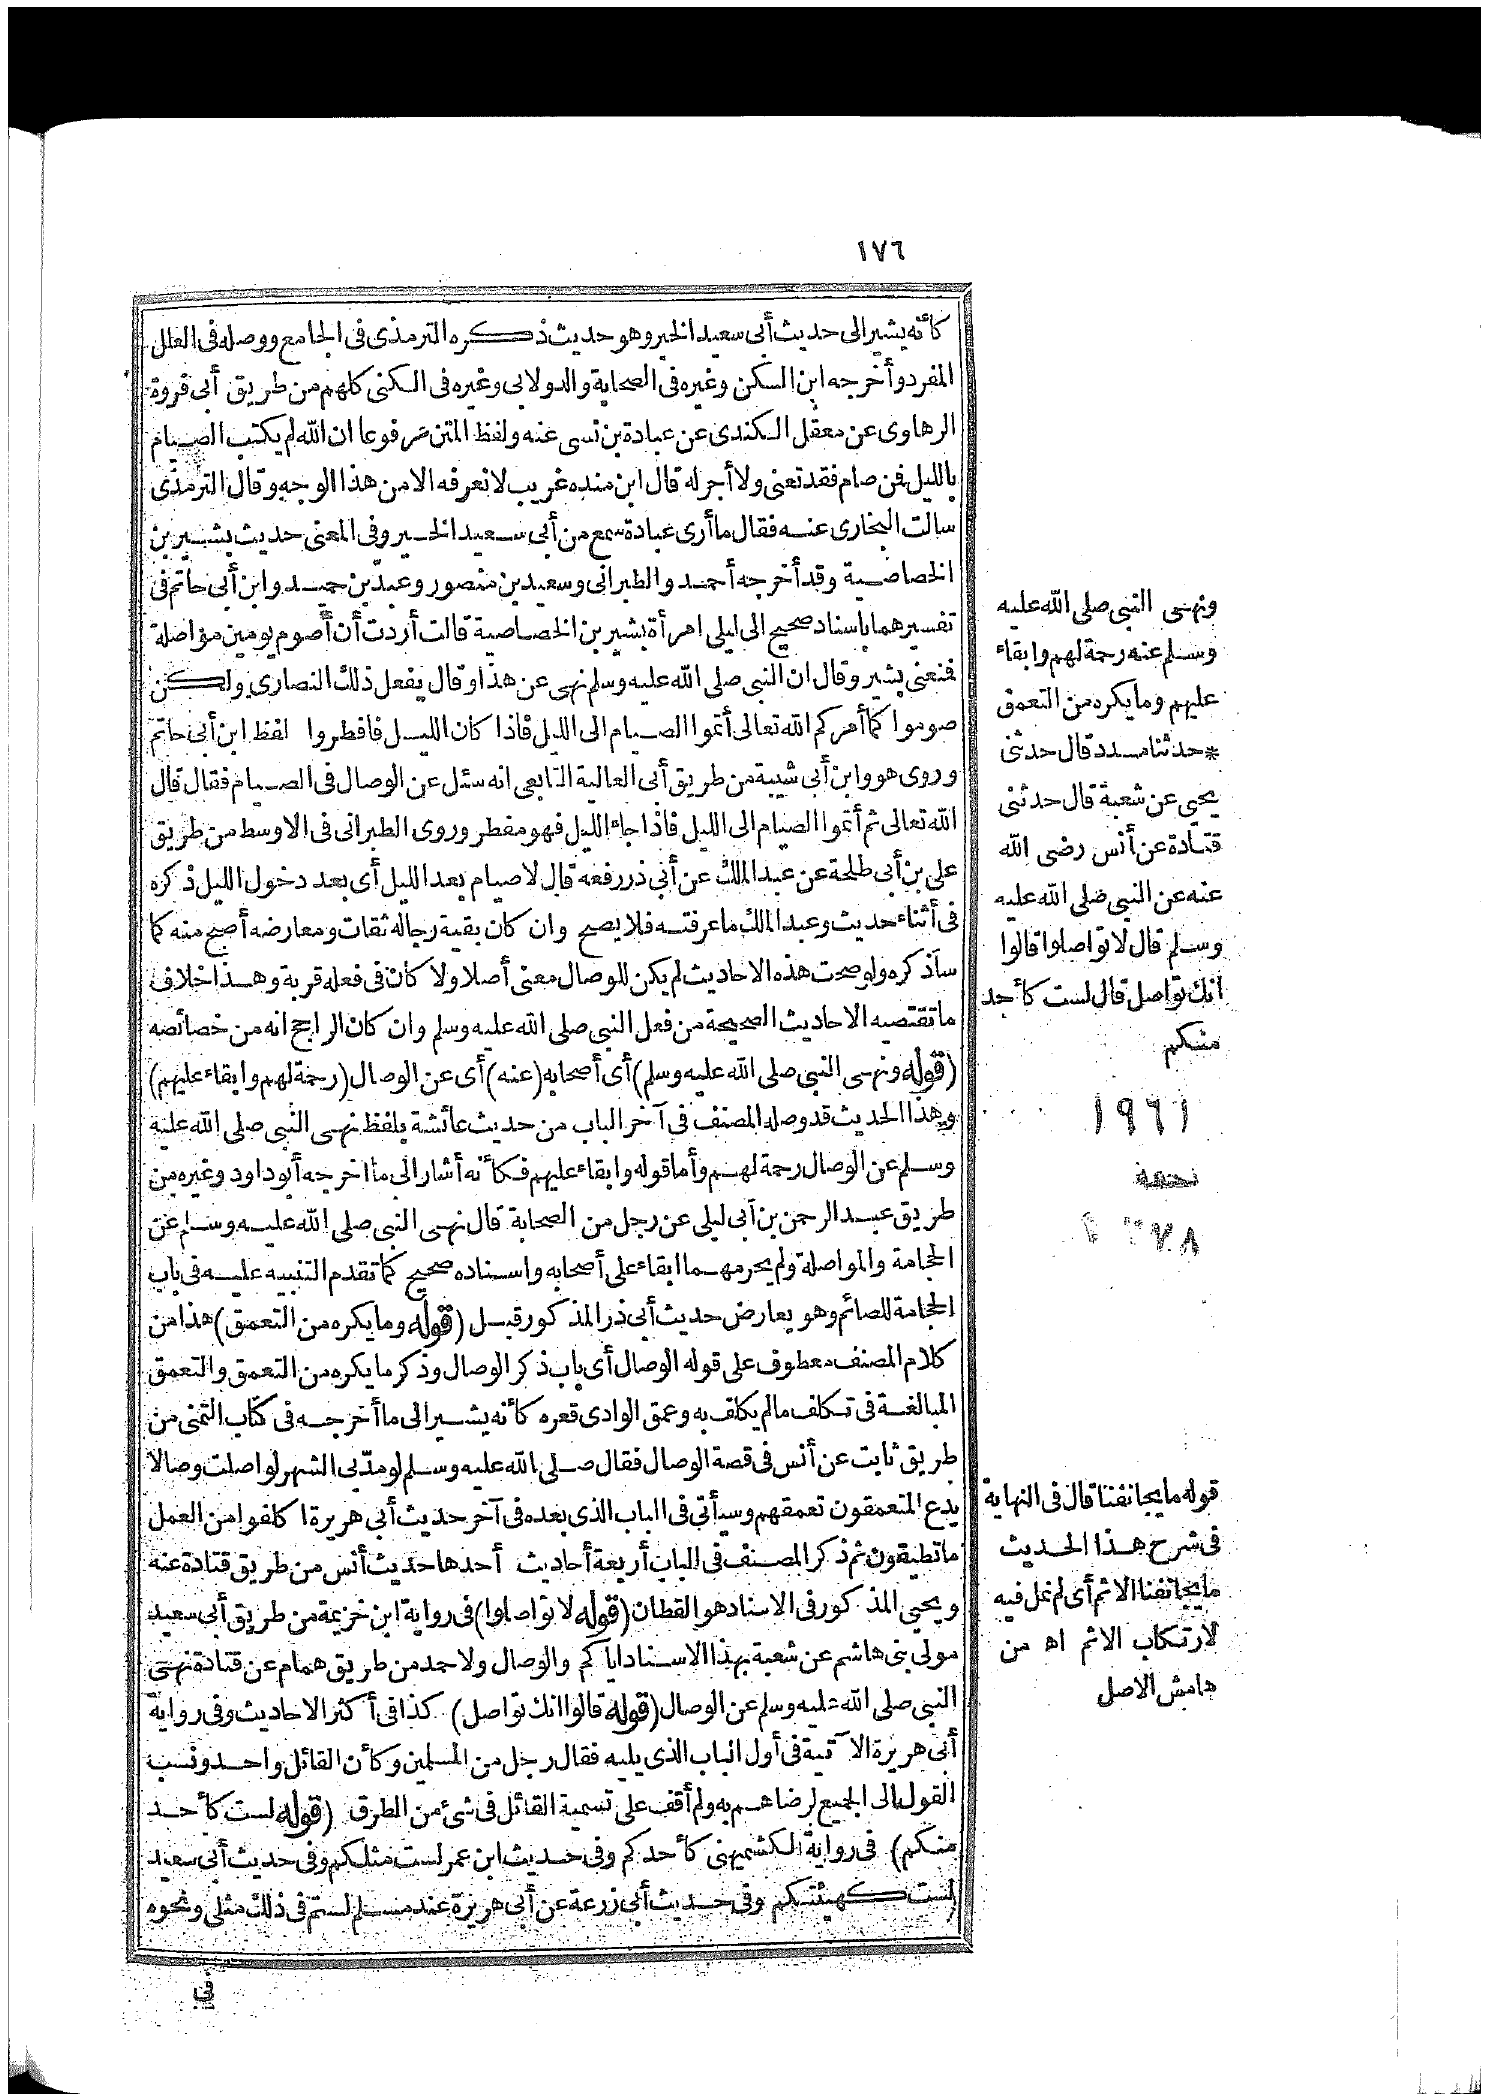 ١٧٦
كأنه يشير الى حديث أبى سعيد الخير وهو حديث ذكره الترمذى فى الجامع ووصله فى العلل
المفرد وأخرجه ابن السكن وغيره فى الصحابة والدولابى وغيره فى الكنى كلهم من طريق أبى فروة
الرهاوى عن معقل الكندى عن عبادة بن نسى عنه ولفظ المتن مرفوعا ان الله لم يكتب الصيام
بالليل فمن صام فقد تعنى ولا أجر له قال ابن منده غريب لا نعرفه الا من هذا الوجه وقال الترمذى
سالت البخارى عنه فقال ما أرى عبادة سمع من أبى سعيد الخير وفى المعنى حديث بشير بن
الخصاصية وقد أخرجه أحمد والطبرانى وسعيد بن منصور وعبد بن حميد وابن أبى حاتم فى
تفسيرهما باسناد صحيح الى ليلى امرأة بشير بن الخصاصية قالت أردت أن أصوم يومين مواصلة
فمنعنى بشير وقال ان النبى صلى الله عليه وسلم نهى عن هذا وقال يفعل ذلك النصارى ولكن
صوموا كما أمركم الله تعالى أتموا الصيام الى الليل فاذا كان الليل فافطروا لفظ ابن أبى حاتم
وروى هو وابن أبى شيبة من طريق أبى العالية التابعى انه سئل عن الوصال فى الصيام فقال قال
الله تعالى ثم أتموا الصيام الى الليل فاذا جاء الليل فهو مفطر وروى الطبرانى فى الاوسط من طريق
على بن أبى طلحة عن عبد الملك عن أبى ذر رفعه قال لا صيام بعد الليل أى بعد دخول الليل ذكره
فى أثناء حديث وعبد الملك ما عرفته فلا يصح وان كان بقية رجاله ثقات ومعارضه أصح منه كما
سأذكره ولو صحت هذه الاحاديث لم يكن للوصال معنى أصلا ولا كان فى فعله قربة وهذا خلاف
ما تقتضيه الاحاديث الصحيحة من فعل النبى صلى الله عليه وسلم وان كان الراجح انه من خصائصه
(قوله ونهى النبى صلى الله عليه وسلم) أى أصحابه (عنه) أى عن الوصال (رحمة لهم وابقاء عليهم)
وهذا الحديث قد وصله المصنف فى آخر الباب من حديث عائشة بلفظ نهى النبى صلى الله عليه
وسلم عن الوصال رحمة لهم وأما قوله وابقاء عليهم فكأنه أشار الى ما أخرجه أبو داود وغيره من
طريق عبد الرحمن بن أبى ليلى عن رجل من الصحابة قال نهى النبى صلى الله عليه وسلم عن
الحجامة والمواصلة ولم يحرمهما ابقاء على أصحابه واسناده صحيح كما تقدم التنبيه عليه فى باب
الحجامة للصائم وهو يعارض حديث أبى ذر المذكور قبل (قوله وما يكره من التعمق) هذا من
كلام المصنف معطوف على قوله الوصال أى باب ذكر الوصال وذكر ما يكره من التعمق والتعمق
المبالغة فى تكلف ما لم يكلف به وعمق الوادى قعره كأنه يشير الى ما أخرجه فى كتاب التمنى من
طريق ثابت عن أنس فى قصة الوصال فقال صلى الله عليه وسلم لو مدّ بى الشهر لواصلت وصالا
يدع المتعمقون تعمقهم وسيأتى فى الباب الذى بعده فى آخر حديث أبى هريرة اكلفوا من العمل
ما تطيقون ثم ذكر المصنف فى الباب أربعة أحاديث أحدها حديث أنس من طريق قتادة عنه
ويحيى المذكور فى الاسناد هو القطان (قوله لا تواصلوا) فى رواية ابن خزيمة من طريق أبى سعيد
مولى بنى هاشم عن شعبة بهذا الاسناد اياكم والوصال ولاحمد من طريق همام عن قتادة نهى
النبى صلى الله عليه وسلم عن الوصال (قوله قالوا انك تواصل) كذا فى أكثر الاحاديث وفى رواية
أبى هريرة الآتية فى أول الباب الذى يليه فقال رجل من المسلمين وكأن القائل واحد ونسب
القول الى الجميع لرضاهم به ولم أقف على تسمية القائل فى شئ من الطرق (قوله لست كأحد
منكم) فى رواية الكشميهنى كأحدكم وفى حديث ابن عمر لست مثلكم وفى حديث أبى سعيد
لست كهيئتكم وفى حديث أبى زرعة عن أبى هريرة عند مسلم لستم فى ذلك مثلى ونحوه
فى
ونهى النبى صلى الله عليه
وسلم عنه رحمة لهم وابقاء
عليهم وما يكره من التعمق
*حدثنا مسدد قال حدثنى
يحيى عن شعبة قال حدثنى
قتادة عن أنس رضى الله
عنه عن النبى صلى الله عليه
وسلم قال لا تواصلوا قالوا
انك تواصل قال لست كأحد
منكم
١٩٦١
تحفة
قوله ما يجانفنا قال فى النهاية
فى شرح هذا الحديث
ما يجانفنا الاثم أى لم نمل فيه
لارتكاب الاثم اه من
هامش الاصل